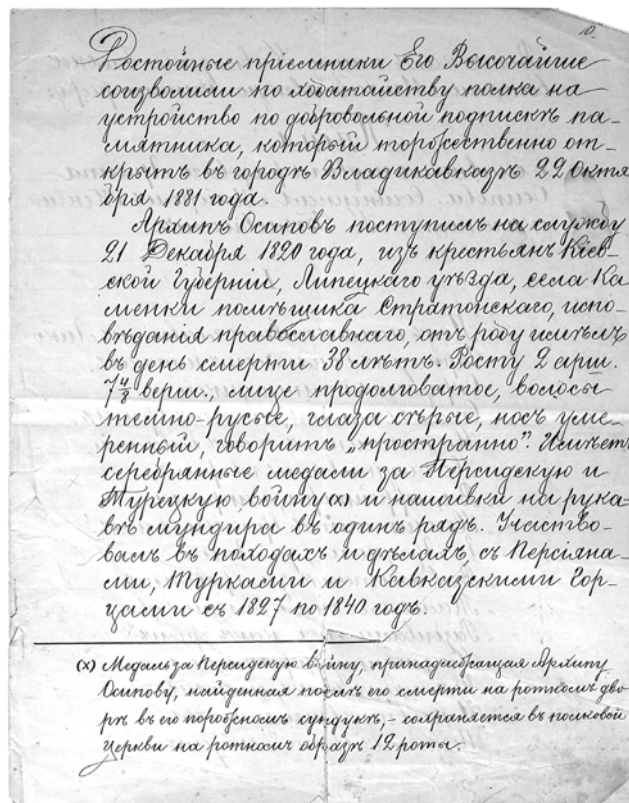 10.
Достойные пріемники Его Высочайше
соизволили по ходатайству полка на
устройство по добровольной подпискѣ па-
мятника, который торжественно от-
крытъ въ городѣ Владикавказѣ 22 Октя
бря 1881 года.
Архипъ Осиповъ поступилъ на службу
21 Декабря 1820 года, изъ крестьянъ Кіев-
ской Губерніи, Липецкаго уѣзда, села Ка
менки помѣщика Стратонскаго, испо-
вѣданія православнаго, отъ роду имѣлъ
въ день смерти 38 лѣтъ. Росту 2 арш.
7 4/8 верш., лице продолговатое, волосы
темно-русые, глаза сѣрые, носъ уме-
ренный, говоритъ „пространно". Имѣетъ
серебрянные медали за Персидскую и
Турецкую войну (x) и нашивки на рука-
вѣ мундира въ одинъ рядъ. Участво-
валъ въ походахъ и дѣлахъ съ Персіяна-
ми, Турками и Кавказскими Гор-
цами съ 1827 по 1840 годъ.
(x) Медаль за Персидскую войну, принадлежащая Архипу
Осипову, найденная послѣ его смерти на ротномъ дво-
рѣ въ его порожномъ сундукѣ, - сохраняется въ полковой
церкви на ротномъ образѣ 12 роты.